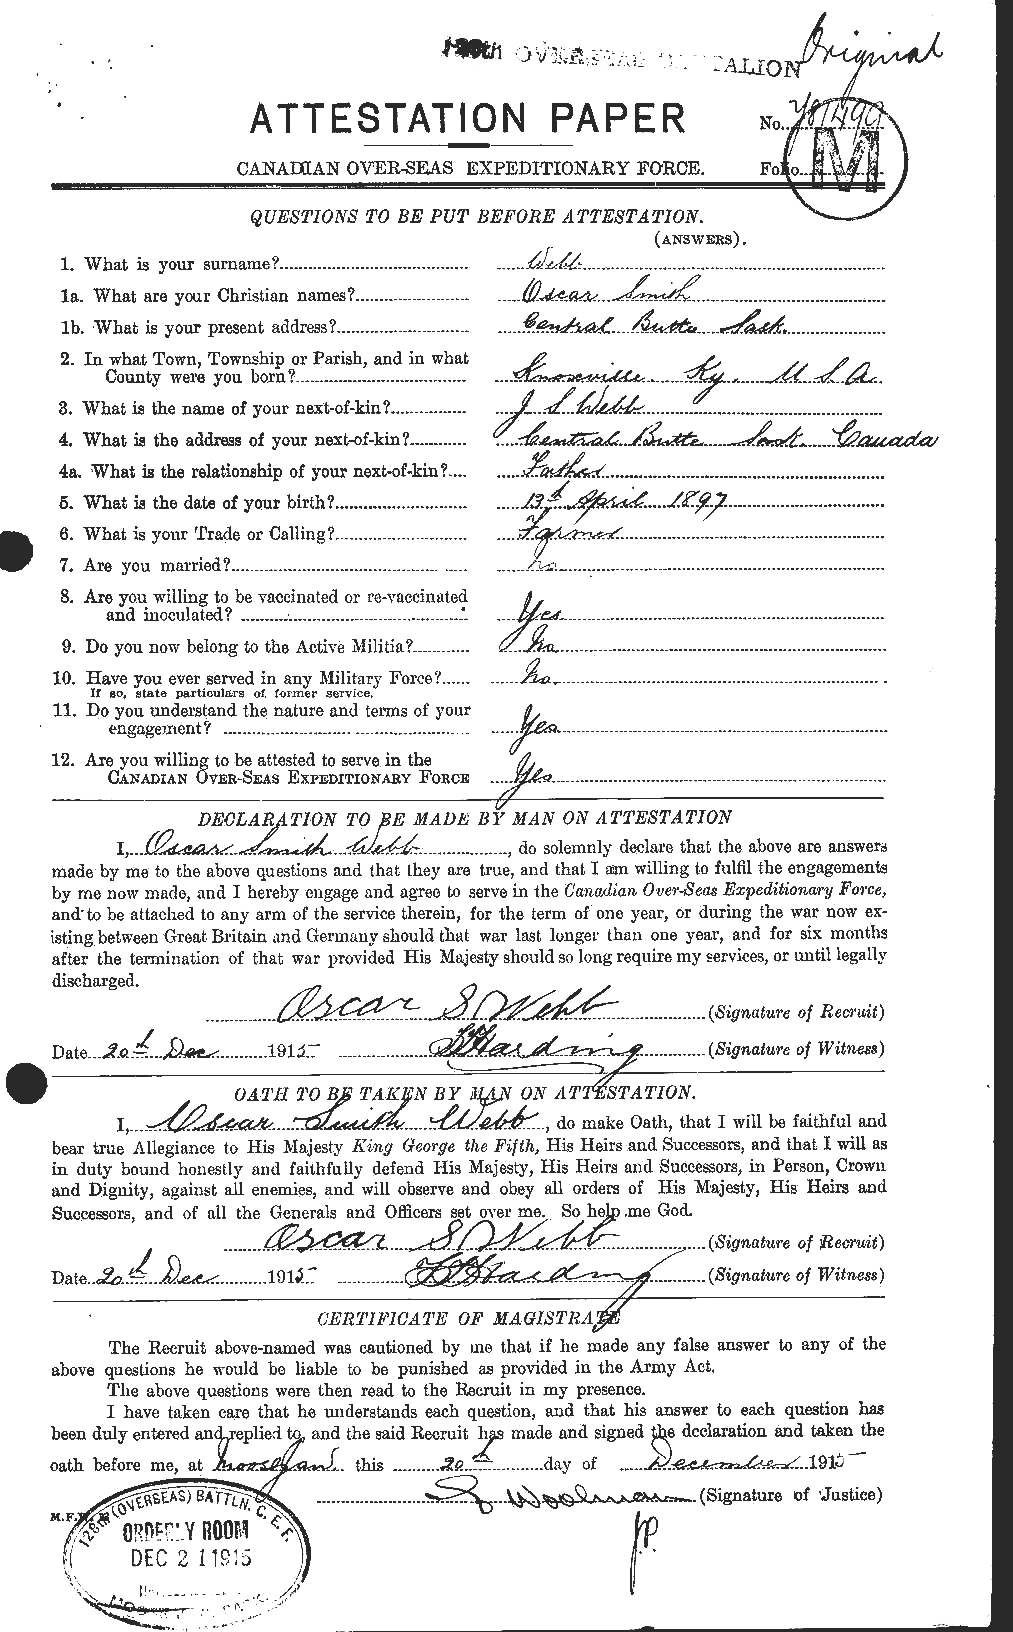 128th OVERSEAS BATTALION Original
ATTESTATION PAPER
No. 781499
CANADIAN OVER-SEAS EXPEDITIONARY FORCE.
Folio. M
QUESTIONS TO BE PUT BEFORE ATTESTATION.
(ANSWERS).
1. What is your surname? Webb
1a. What are your Christian names? Oscar Smith
1b. What is your present address? Central Butte Sask.
2. In what Town, Township or Parish, and in what
County were you born? Knoxville. Ky. U S A
3. What is the name of your next-of-kin? J S Webb
4. What is the address of your next-of-kin? Central Butte Sask. Canada
4a. What is the relationship of your next-of-kin? Father
5. What is the date of your birth? 13th April 1897
6. What is your Trade or Calling? Farmer
7. Are you married? No
8. Are you willing to be vaccinated or re-vaccinated
and inoculated? Yes
9. Do you now belong to the Active Militia? No
10. Have you ever served in any Military Force? No.
If so, state particulars of former service.
11. Do you understand the nature and terms of your
engagement? Yes
12. Are you willing to be attested to serve in the
CANADIAN OVER-SEAS EXPEDITIONARY FORCE Yes
DECLARATION TO BE MADE BY MAN ON ATTESTATION
I, Oscar Smith Webb, do solemnly declare that the above are answers
made by me to the above questions and that they are true, and that I am willing to fulfil the engagements
by me now made, and I hereby engage and agree to serve in the Canadian Over-Seas Expeditionary Force,
and to be attached to any arm of the service therein, for the term of one year, or during the war now ex-
isting between Great Britain and Germany should that war last longer than one year, and for six months
after the termination of that war provided His Majesty should so long require my services, or until legally
discharged.
Oscar S Webb (Signature of Recruit)
Date 20th Dec 1915 Harding (Signature of Witness)
OATH TO BE TAKEN BY MAN ON ATTESTATION.
I, Oscar Smith Webb, do make Oath, that I will be faithful and
bear true Allegiance to His Majesty King George the Fifth, His Heirs and Successors, and that I will as
in duty bound honestly and faithfully defend His Majesty, His Heirs and Successors, in Person, Crown
and Dignity, against all enemies, and will observe and obey all orders of His Majesty, His Heirs and
Successors, and of all the Generals and Officers set over me. So help me God.
Oscar S Webb (Signature of Recruit)
Date 20th Dec 1915 Harding (Signature of Witness)
CERTIFICATE OF MAGISTRATE
The Recruit above-named was cautioned by me that if he made any false answer to any of the
above questions he would be liable to be punished as provided in the Army Act.
The above questions were then read to the Recruit in my presence.
I have taken care that he understands each question, and that his answer to each question has
been duly entered and replied to, and the said Recruit has made and signed the declaration and taken the
oath before me, at Moose Jaw this 20th day of December 1915
Woolman (Signature of Justice)
J.P.
M.F.W.
128th (OVERSEAS) BATTLN. C.E.F.
ORDERLY ROOM
DEC 21 1915